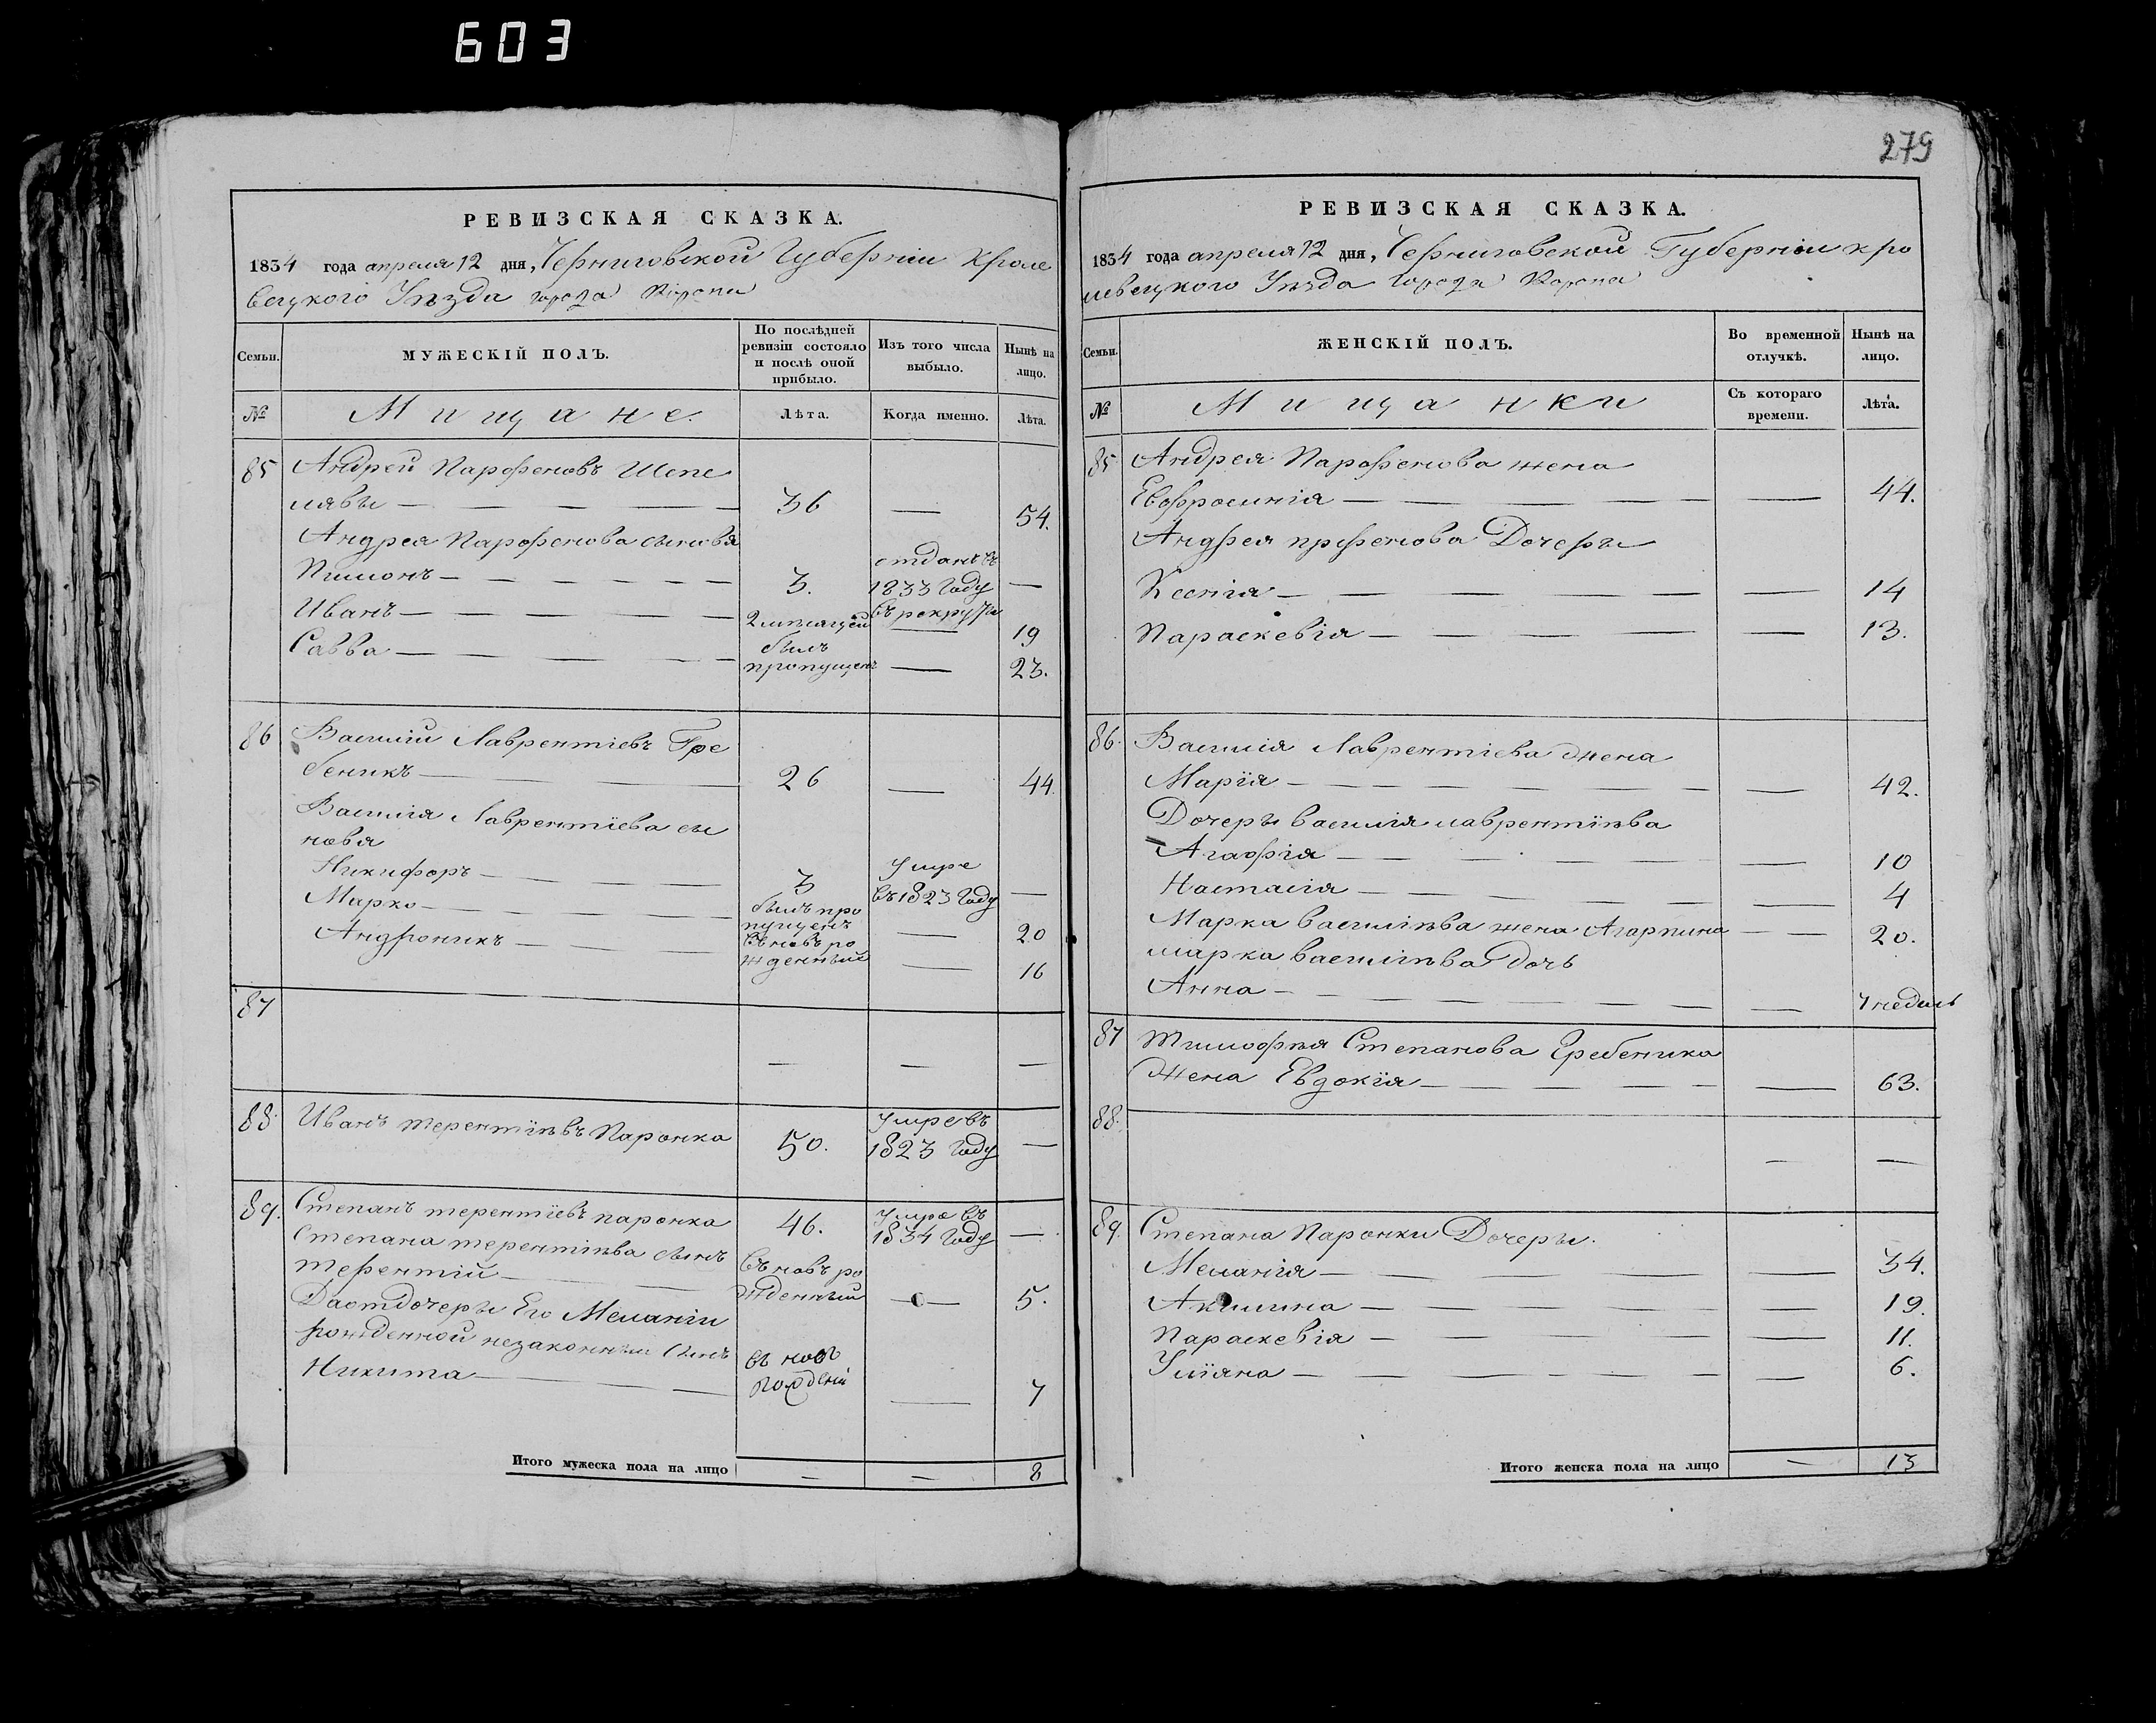 603
279
РЕВИЗСКАЯ СКАЗКА.
1834 года апреля 12 дня, Черниговской Губерніи Кроле
вецкого Уезда города Коропа
Семьи.
МУЖЕСКІЙ ПОЛЪ.
По послѣдней
ревизіи состояло
и послѣ оной
прибыло.
Изъ того числа
выбыло.
Нынѣ на
лицо.
№
Мищане.
Лѣта.
Когда именно.
Лѣта.
85 Андрей Парофеновъ Шепе
лявы — 36 — 54.
Андрея Парофенова сыновя
отданъ въ
Пимонъ — 3. 1833 Году —
въ рекруты
Иванъ — 2 — 19
былъ
Савва — пропущенъ — 23.
86 Василій Лаврентіевъ Гре
беникъ — 26 — 44.
Василія Лаврентіева сы
новя
Умре
Никифоръ — 3 въ 1823 Году —
Марко — былъ про
пущенъ — 20
Андроникъ — въновъ ро
жденный — 16
87 — — —
88. Иванъ терентіевъ Паронка 50. Умре въ
1823 Году —
89. Степанъ терентіевъ паронка 46. Умре въ
1834 Году —
Степана терентіева сынъ
терентій — въновъ ро
жденный — 5.
Даотдочеры Его Меланіи
рожденной незаконный Сынъ
Никита — въ новъ
— 7
Итого мужеска пола на лицо — — 8
РЕВИЗСКАЯ СКАЗКА.
1834 года апреля 12 дня, Черниговской Губерніи кро
левецкого Уезда города Коропа
Семьи.
ЖЕНСКІЙ ПОЛЪ.
Во временной
отлучкѣ.
Нынѣ на
лицо.
№
Мищанки
Съ котораго
времени.
Лѣта.
85 Андрея Парофенова жена
Евфросинія — — 44.
Андрея прфенова Дочеры
Ксенія — — 14
Параскевія — — 13.
86. Василія Лаврентіева жена
Марїя — — 42.
Дочеры василія лаврентїева
Агафія — — 10
Настасія — — 4
Марка василіева жена Агарпина — 20.
марка василіева дочь
Анна — — недель
87 тимофея Степанова Гребеника
жена Евдокїя — — 63.
88. — —
89. Степана Паронки Дочеры.
Меланія — — 34.
Акилина — — 19.
Параскевія — — 11.
Улїяна — — 6.
Итого женска пола на лицо — 13